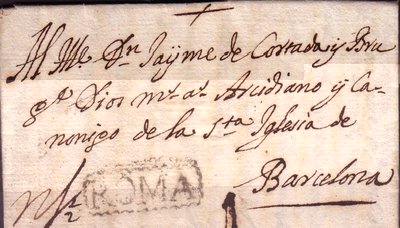 Al Ille. Dn. Jayme de Cortada y Bru
ge. Dios ms. as. Arcidiano y Ca-
nonigo de la Sta Iglesia de
Barcelona
ROMA